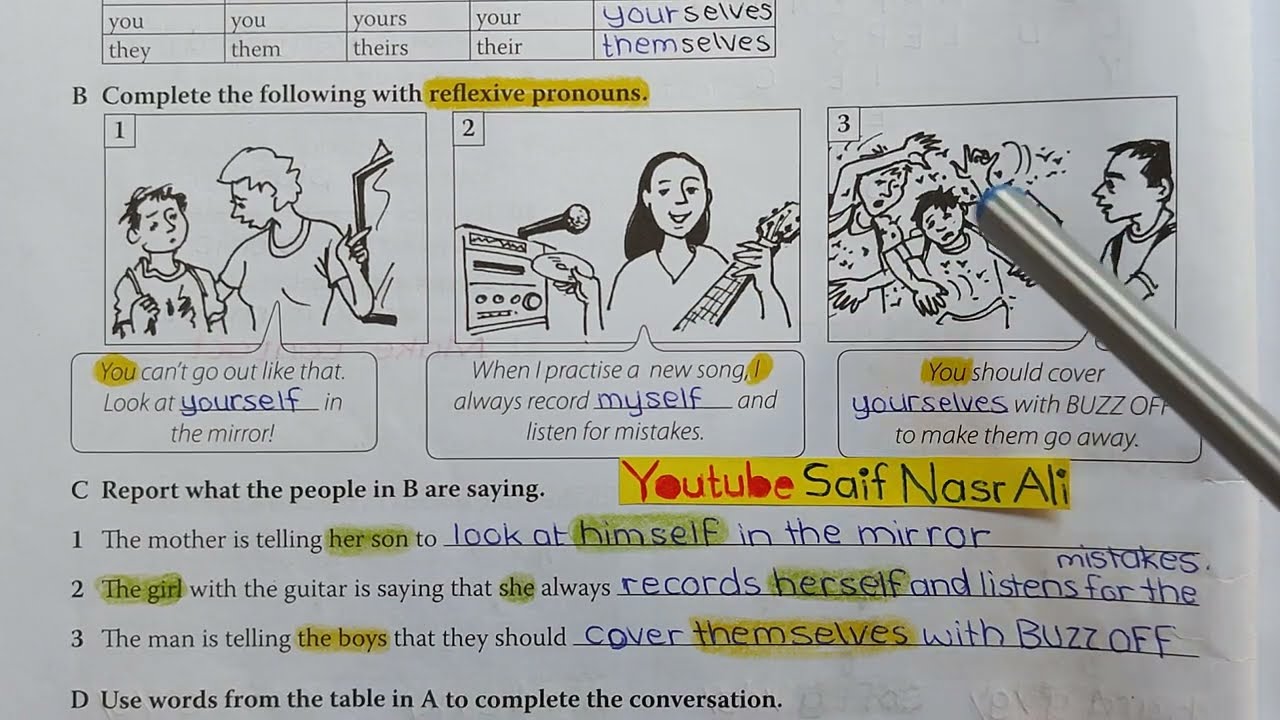 you you yours your yourselves
they them theirs their themselves
B Complete the following with reflexive pronouns.
1
2
3
You can't go out like that.
Look at yourself in
the mirror!
When I practise a new song, I
always record myself and
listen for mistakes.
You should cover
yourselves with BUZZ OFF
to make them go away.
C Report what the people in B are saying.
Youtube Saif Nasr Ali
1 The mother is telling her son to look at himself in the mirror
mistakes.
2 The girl with the guitar is saying that she always records herself and listens for the
3 The man is telling the boys that they should cover themselves with BUZZ OFF
D Use words from the table in A to complete the conversation.